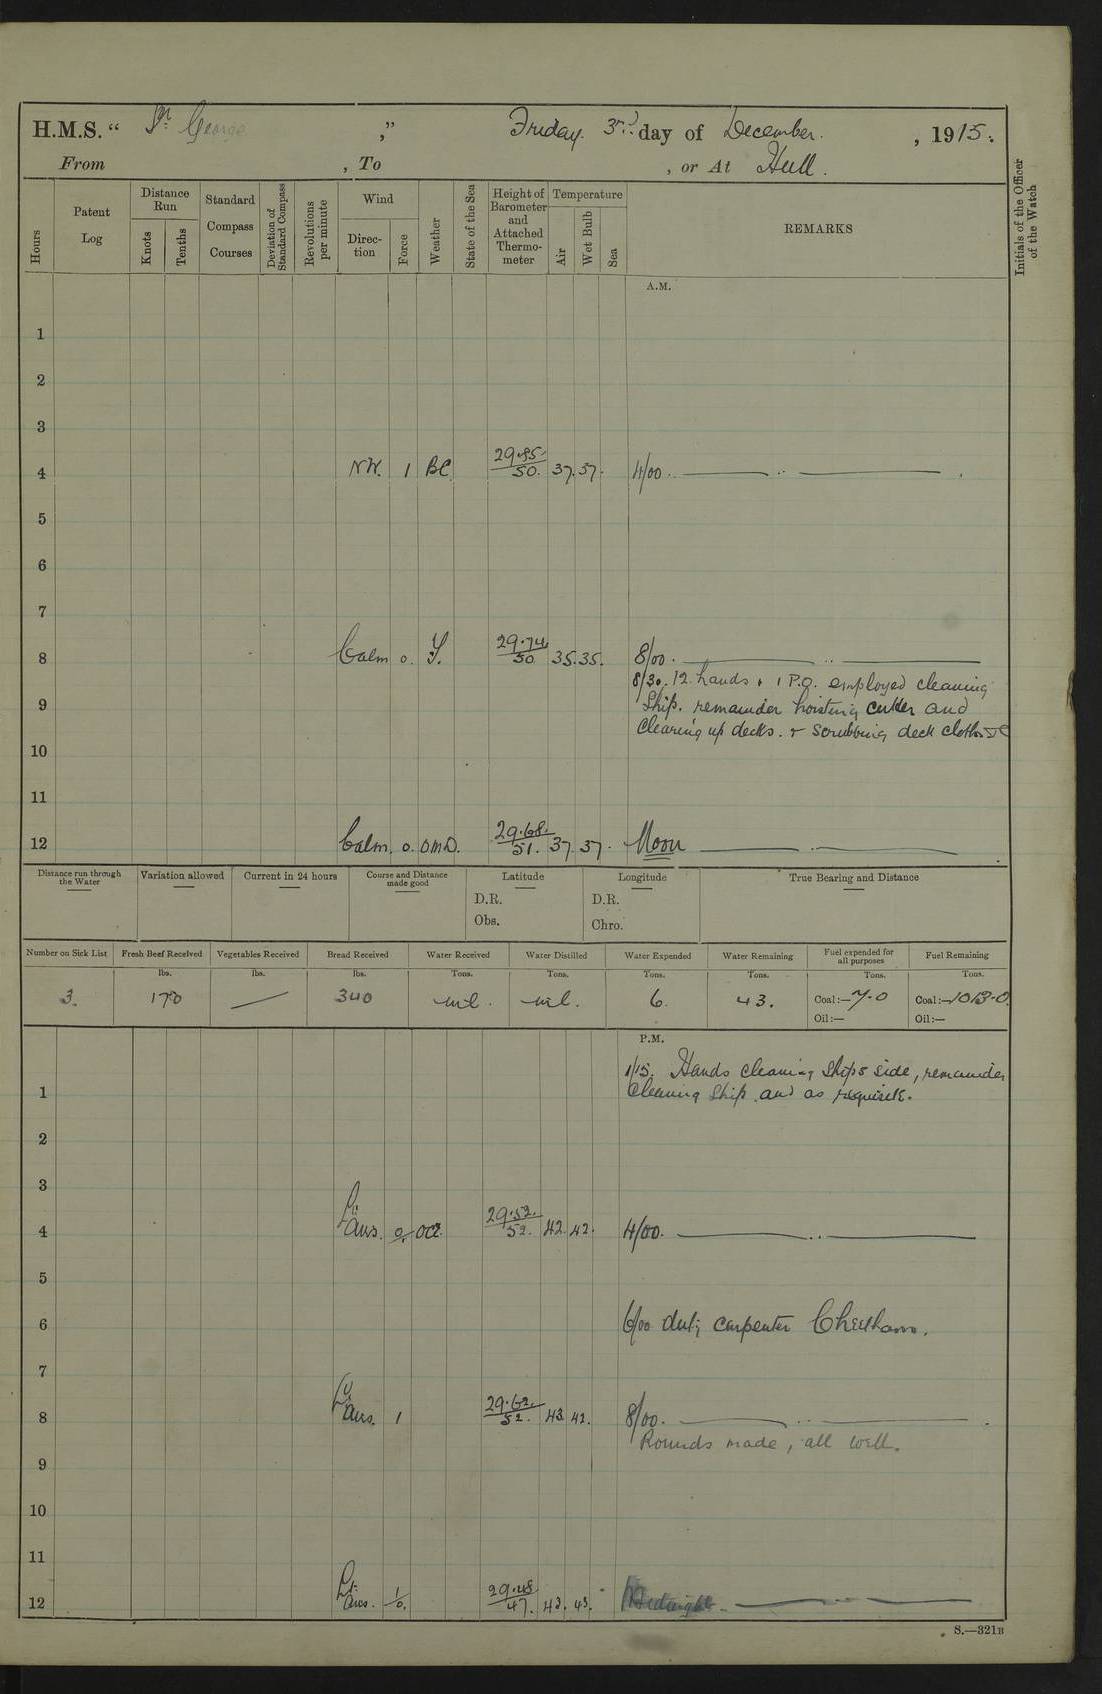 H.M.S. “ St George ,” Friday 3rd day of December. , 1915.
From , To , or At Hull.
Hours
Patent Log
Distance Run
Knots
Tenths
Standard Compass Courses
Deviation of Standard Compass
Revolutions per minute
Wind
Direction
Force
Weather
State of the Sea
Height of Barometer and Attached Thermometer
Temperature
Air
Wet Bulb
Sea
REMARKS
Initials of the Officer of the Watch
A.M.
1
2
3
4 NW. 1 BC 29.85 50. 37. 37. 4/00.
5
6
7
8 Calm 0. 29.74 50 35. 35. 8/00.
8/30. 12 hands & 1 P.O. employed cleaning
9 Ship. remainder hoisting cutter and
Clearing up decks. & scrubbing deck cloths
10
11
12 Calm. 0. OMD. 29.68. 51. 37 37. Noon
Distance run through the Water
Variation allowed
Current in 24 hours
Course and Distance made good
Latitude
D.R.
Obs.
Longitude
D.R.
Chro.
True Bearing and Distance
Number on Sick List
Fresh Beef Received
Vegetables Received
Bread Received
Water Received
Water Distilled
Water Expended
Water Remaining
Fuel expended for all purposes
Fuel Remaining
lbs. lbs. lbs. Tons. Tons. Tons. Tons. Tons. Tons.
3. 170 340 nil. nil. 6. 43. Coal:— 7.0 Coal:— 1013.0
Oil:— Oil:—
P.M.
1/15. Hands cleaning Ships side, remainder
1 Cleaning Ship and as requisite.
2
3
4 Lt. airs. 0/1 29.52. 52. 42 42. 4/00.
5
6 6/00 duty carpenter Cheetham.
7
8 Lt. airs. 1 29.62. 52. 43 42. 8/00.
Rounds made, all well.
9
10
11
12 Lt. airs. 1/0. 29.48 47. 43. 43. Midnight
S.—321B